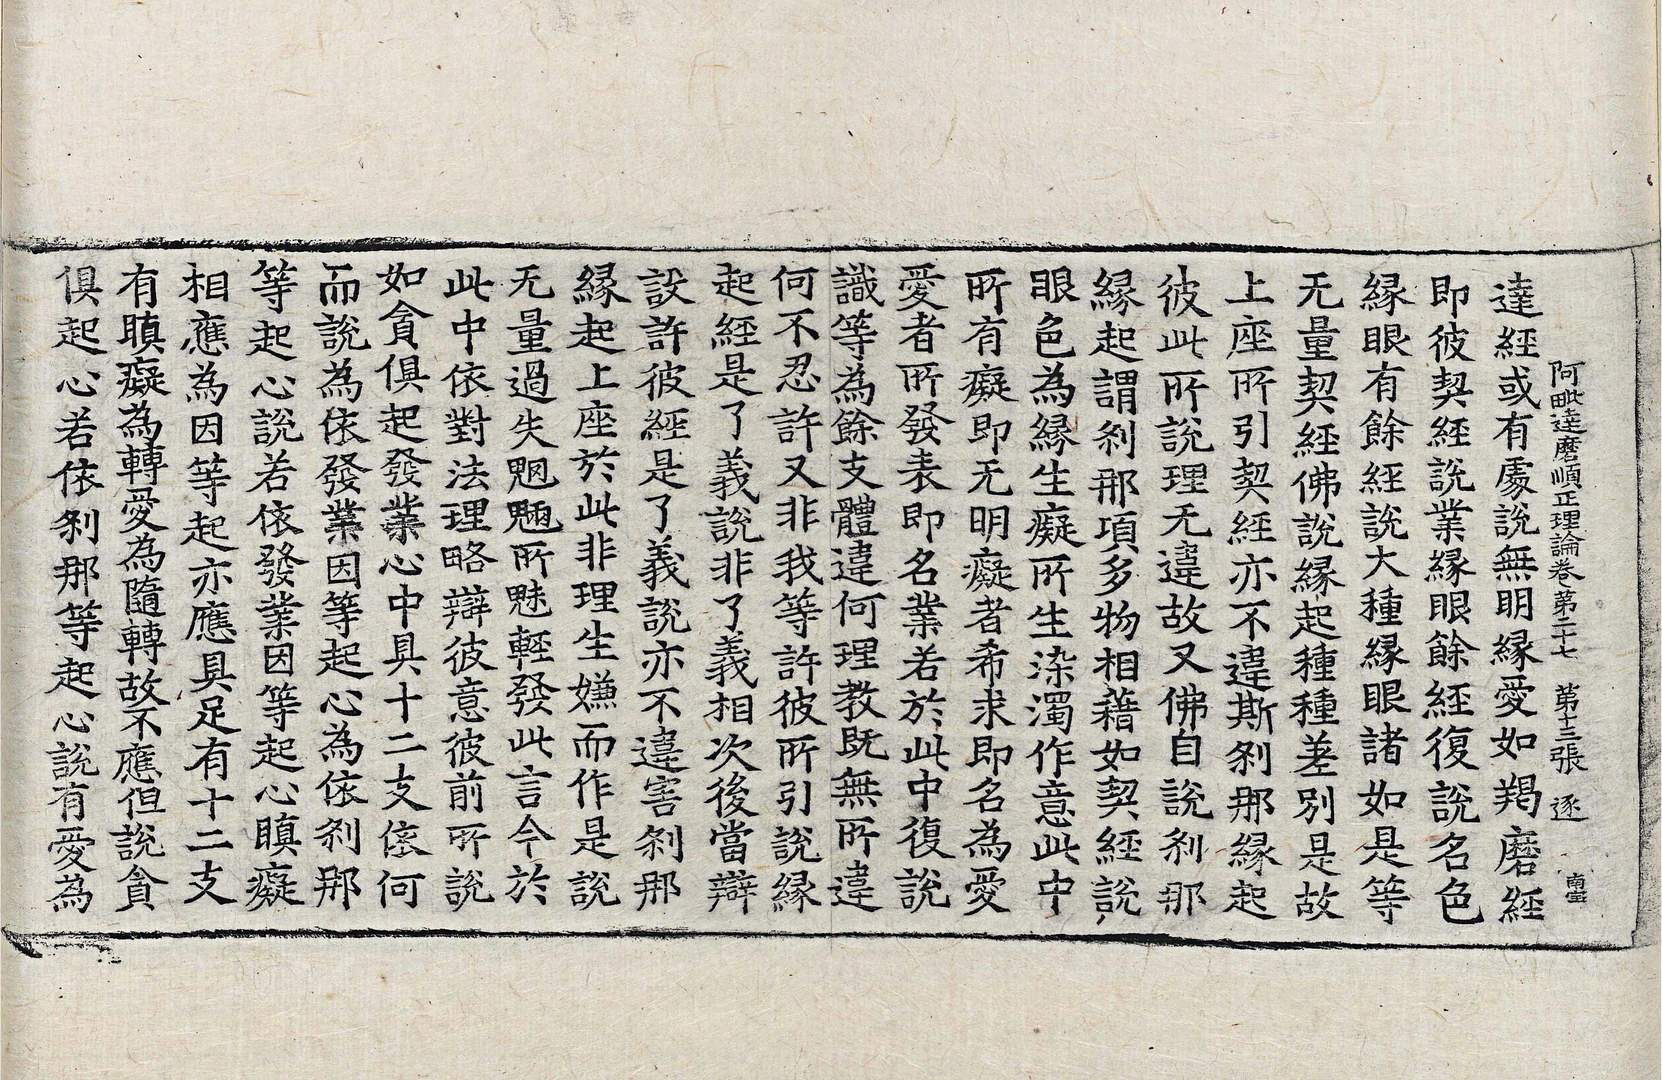 阿毗達磨順正理論卷第二十七　第十三張　逐
達經或有處說無明緣愛如羯磨經
即彼契經說業緣眼餘經復說名色
緣眼有餘經說大種緣眼諸如是等
无量契經佛說緣起種種差別是故
上座所引契經亦不違斯剎那緣起
彼此所說理无違故又佛自說剎那
緣起謂剎那頃多物相藉如契經說
眼色為緣生癡所生染濁作意此中
所有癡即无明癡者希求即名為愛
愛者所發表即名業若於此中復說
識等為餘支體違何理教既無所違
何不忍許又非我等許彼所引說緣
起經是了義說非了義相次後當辯
設許彼經是了義說亦不違害剎那
緣起上座於此非理生嫌而作是說
无量過失魍魎所魅輕發此言今於
此中依對法理略辯彼意彼前所說
如貪俱起發業心中具十二支依何
而說為依發業因等起心為依剎那
等起心說若依發業因等起心瞋癡
相應為因等起亦應具足有十二支
有瞋癡為轉愛為隨轉故不應但說貪
俱起心若依剎那等起心說有愛為